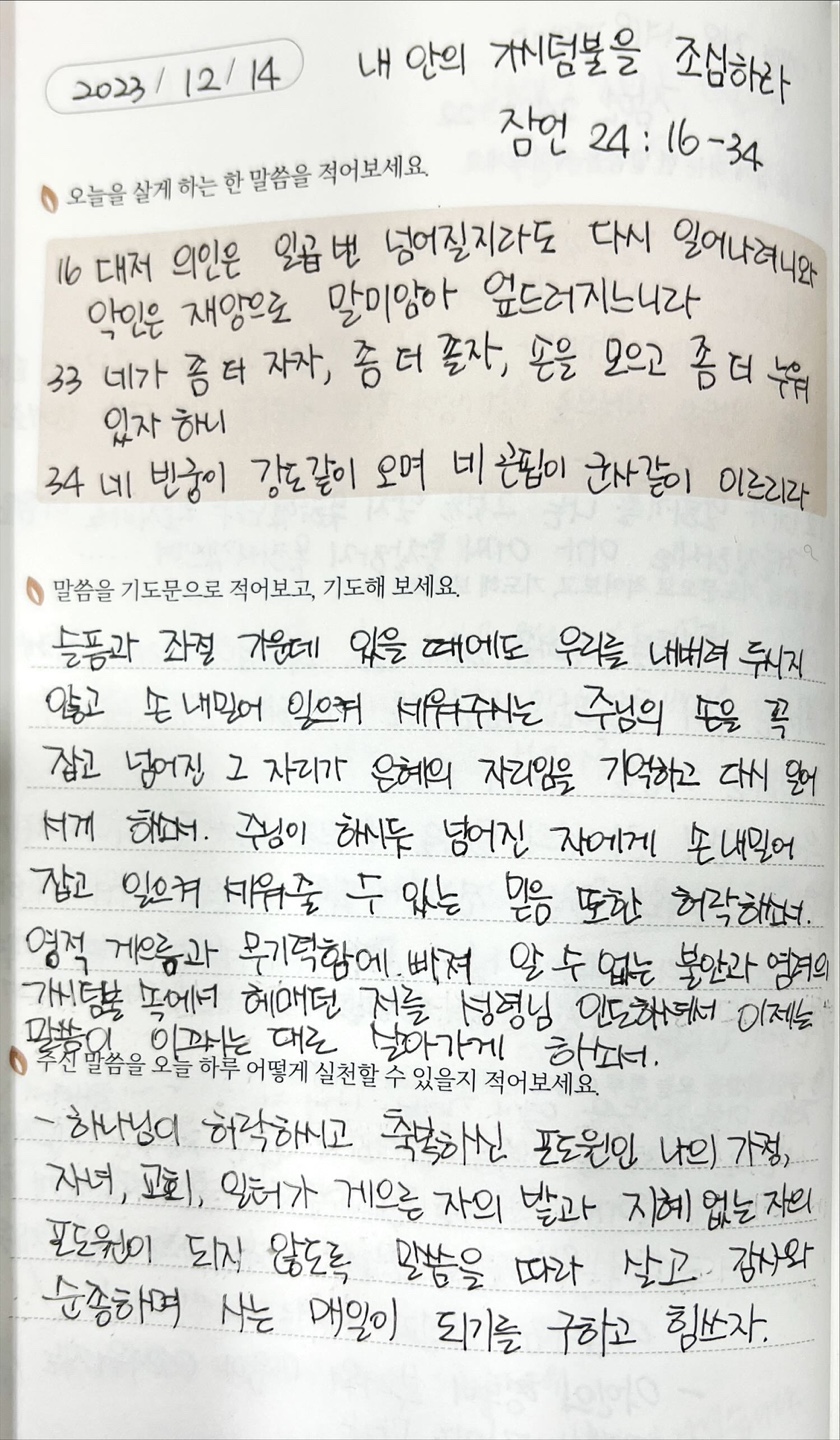 2023 / 12 / 14
내 안의 가시덤불을 조심하라
잠언 24 : 16 - 34
오늘을 살게 하는 한 말씀을 적어보세요.
16 대저 의인은 일곱 번 넘어질지라도 다시 일어나려니와
악인은 재앙으로 말미암아 엎드러지느니라
33 네가 좀 더 자자, 좀 더 졸자, 손을 모으고 좀 더 누워
있자 하니
34 네 빈궁이 강도같이 오며 네 곤핍이 군사같이 이르리라
말씀을 기도문으로 적어보고, 기도해 보세요.
슬픔과 좌절 가운데 있을 때에도 우리를 내버려 두시지
않고 손 내밀어 일으켜 세워주시는 주님의 손을 꼭
잡고 넘어진 그 자리가 은혜의 자리임을 기억하고 다시 일어
서게 하소서. 주님이 하시듯 넘어진 자에게 손 내밀어
잡고 일으켜 세워줄 수 있는 믿음 또한 허락하소서.
영적 게으름과 무기력함에 빠져 알 수 없는 불안과 염려의
가시덤불 속에서 헤매던 저를 성령님 인도하셔서 이제는
말씀이 이끄시는 대로 살아가게 하소서.
주신 말씀을 오늘 하루 어떻게 실천할 수 있을지 적어보세요.
- 하나님이 허락하시고 축복하신 포도원인 나의 가정,
자녀, 교회, 일터가 게으른 자의 밭과 지혜 없는 자의
포도원이 되지 않도록 말씀을 따라 살고 감사와
순종하며 사는 매일이 되기를 구하고 힘쓰자.